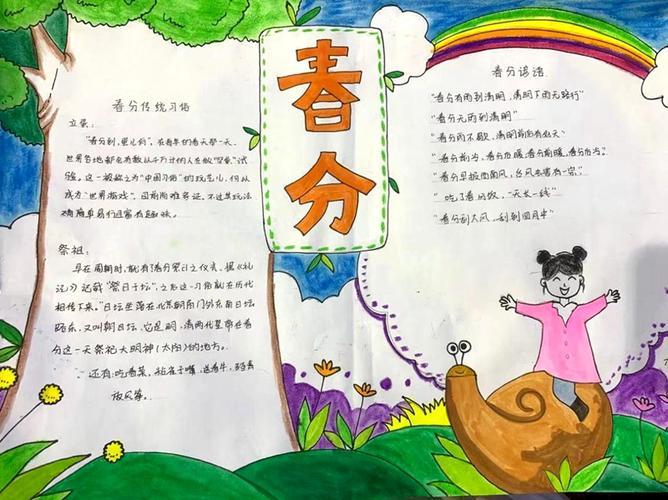 春分
春分传统习俗
立蛋:
"春分到,蛋儿俏",在每年的春天那一天,
世界各地都会有数以千万计的人在做"竖蛋"试
验。这一被称之为"中国习俗"的玩艺儿,何以
成为"世界游戏",目前尚难考证。不过其玩法
简单易行且富有趣味。
祭祖:
早在周朝时,就有了春分祭日之仪式。据《礼
记》达载"祭日于坛",之后这一习俗就在历代
相传下来。"日坛坐落在北京朝阳门外东南日坛
路东,又叫朝日坛,它是明、清两代皇帝在春
分这一天祭祀大明神(太阳)的地方。
还有:吃春菜、粘雀子嘴、送春牛、踏青
放风筝。
春分谚语:
"春分有雨到清明,清明下雨无路行"
"春分无雨到清明"
"春分雨不歇,清明前后有好天"
"春分前冷,春分后暖,春分前暖,春分后冷"。
"春分早报西南风,台风虫害有一宗"
"吃了春分饭,一天长一线"
"春分刮大风,刮到四月中"